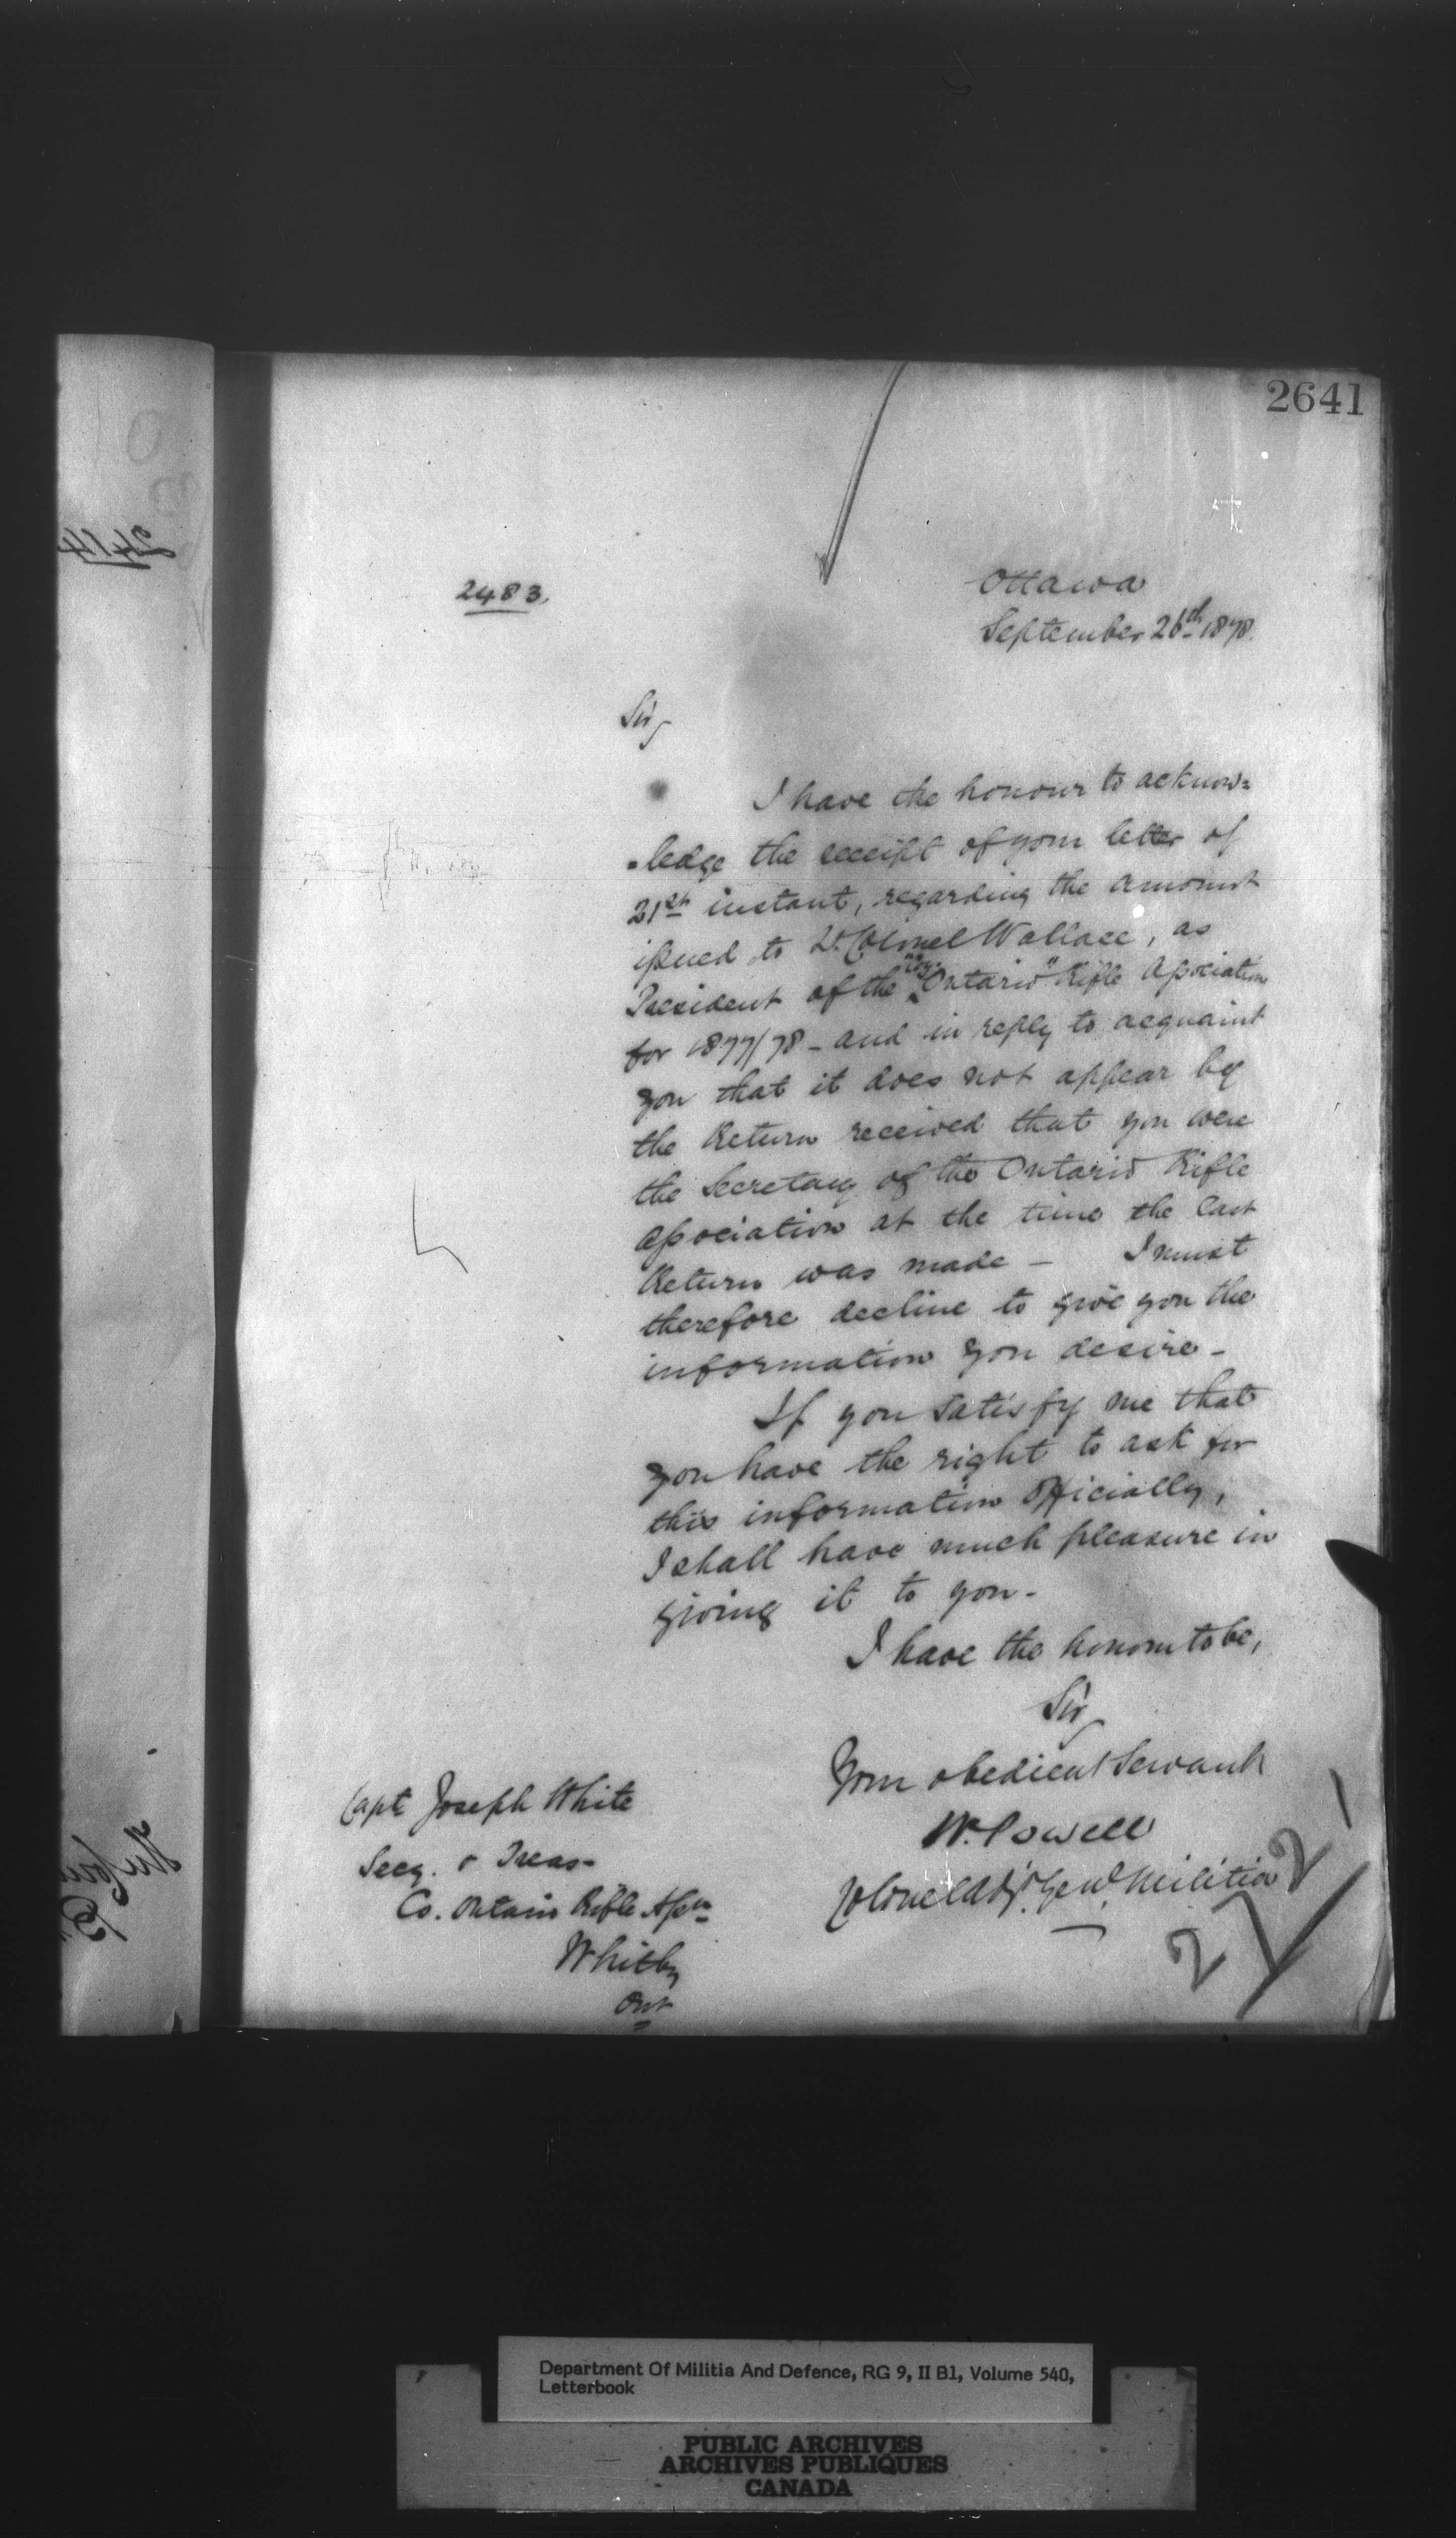 2641
2414
2483.
Ottawa
September 26th 1878.
Sir,
I have the honour to acknow=
=ledge the receipt of your letter of
21st instant, regarding the amount
issued to Lt. Colonel Wallace, as
President of the "Co. Ontario" Rifle Association
for 1877/78 - and in reply to acquaint
you that it does not appear by
the Return received that you were
the Secretary of the Ontario Rifle
Association at the time the last
Return was made - I must
therefore decline to give you the
information you desire -
If you satisfy me that
you have the right to ask for
this information officially,
I shall have much pleasure in
giving it to you -
I have the honour to be,
Sir,
Your obedient Servant
W. Powell
Colonel Adjt. Genl. Militia
Capt Joseph White
Secy. & Treas-
Co. Ontario Rifle Assn
Whitby
Ont
Department Of Militia And Defence, RG 9, II B1, Volume 540,
Letterbook
PUBLIC ARCHIVES
ARCHIVES PUBLIQUES
CANADA